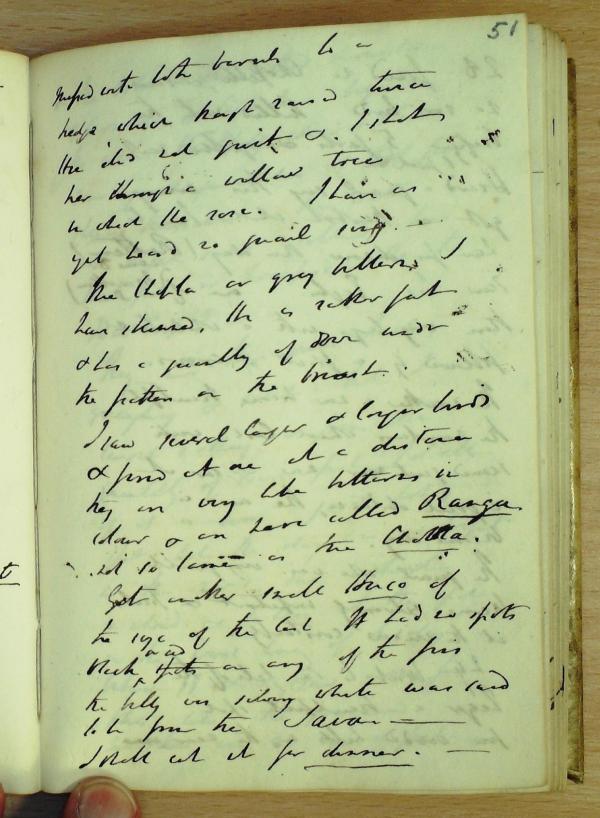 51
with both barrels to a
hedge which though raised twice
He did not quit & . I shot
her through a willow tree
in which he rose. I have as
yet heard no quail sing. —
The or grey bitterns I
have skinned, He is rather fat
& has a quantity of down under
the feathers on the breast.
I saw several larger & longer birds
& fired at one at a distance
they are very like bitterns in
colour & are here called Ranga
not so as the
Got another small Huco of
the size of the last It had no spots
Black spots on any of the fins
the belly was silvery white was said
to be from the Savan —
I shall eat it for dinner. —